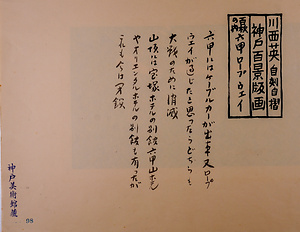 川西英 自刻自摺
神戸百景版画
百景の内 六甲ロープウェイ
六甲にはケーブルカーが出来又ロープ
ウェイが通じたと思ったらどちらも
大戦のために消滅
山頂には宝塚ホテルの別館六甲山ホテル
やオリエンタルホテルの別館も有ったが
これも今は
神戸美術館蔵
98